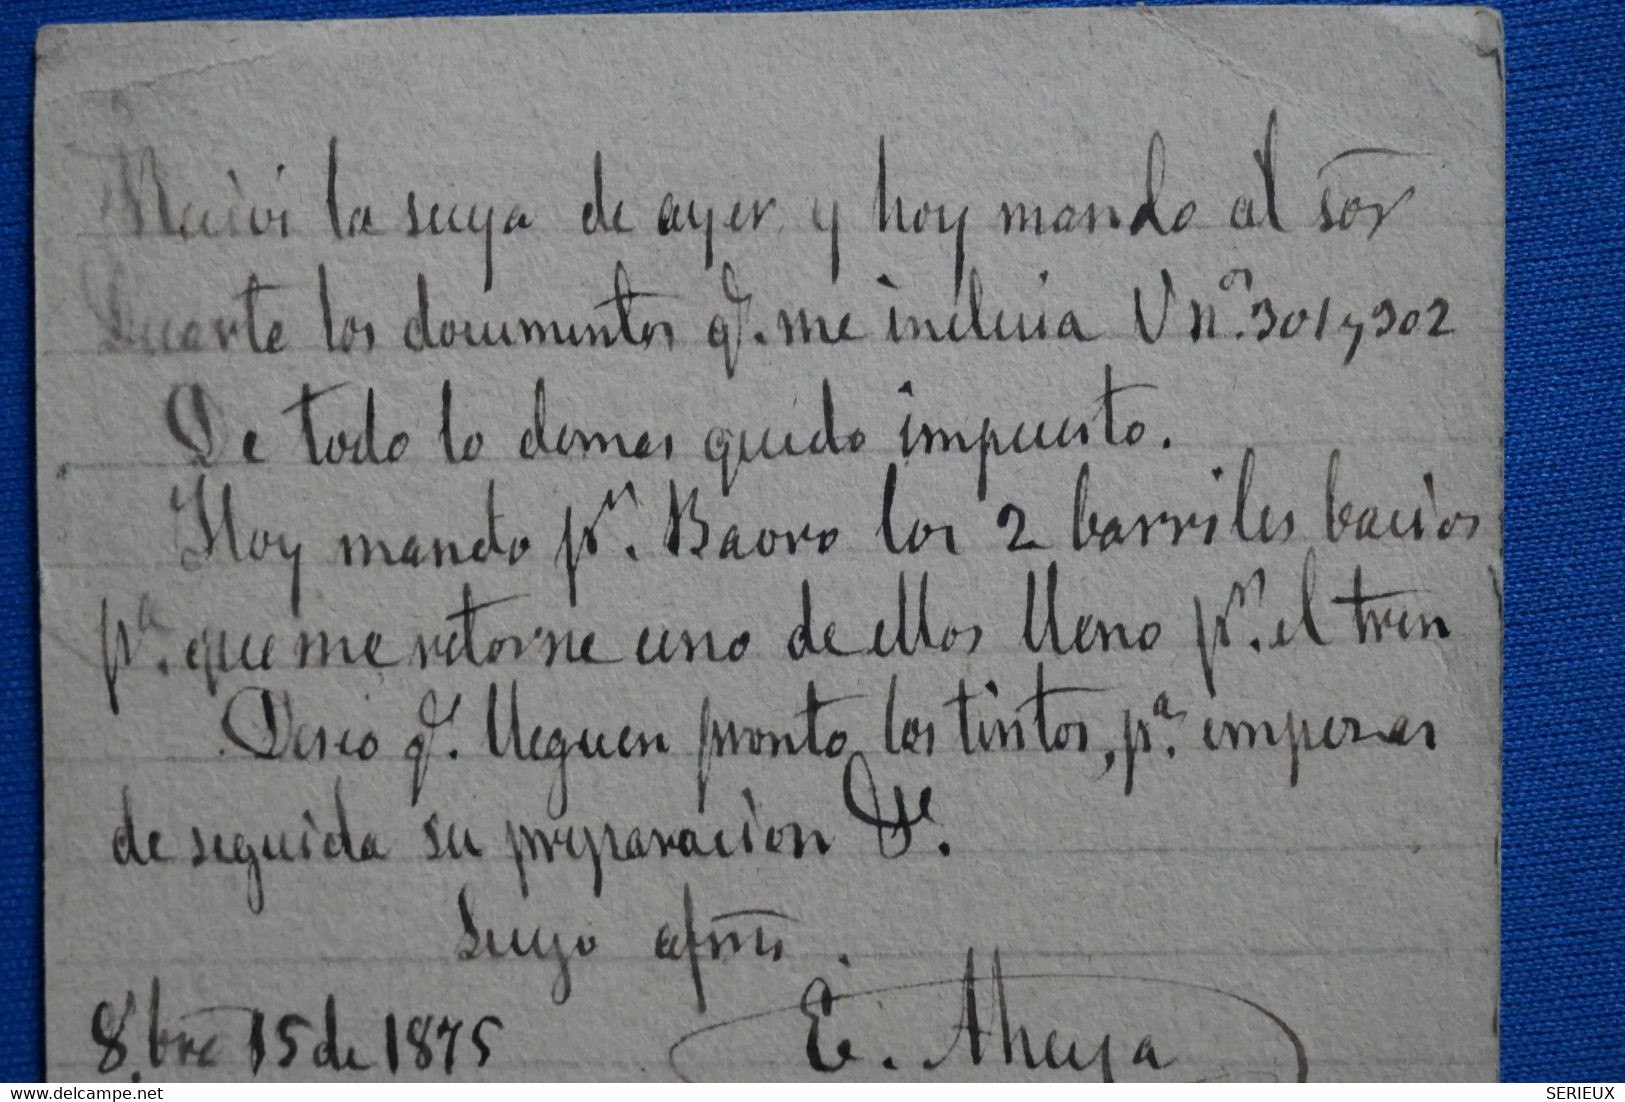 Recivi la suya de ayer y hoy mando al Sor
Duarte los documentos q.e me incluia V nº. 301 y 302
De todo lo demas quedo impuesto.
Hoy mando pr. Baoro los 2 barriles bacios
pa. que me retorne uno de ellos lleno pr. el tren
Deseo q.e lleguen pronto los tintos, pa. empezar
de seguida su preparacion &e.
Suyo afmo.
8.bre 15 de 1875 E.
delcampe.net
SERIEUX